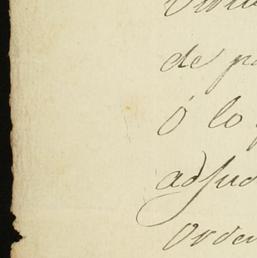 de p
O lo
adjud
Orden